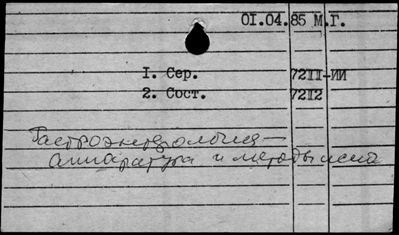 01.04.85 М.Г.
1. Сер. 72II-ИИ
2. Сост. 72I2
Гастроэнтерология —
аппаратура и методы иссл